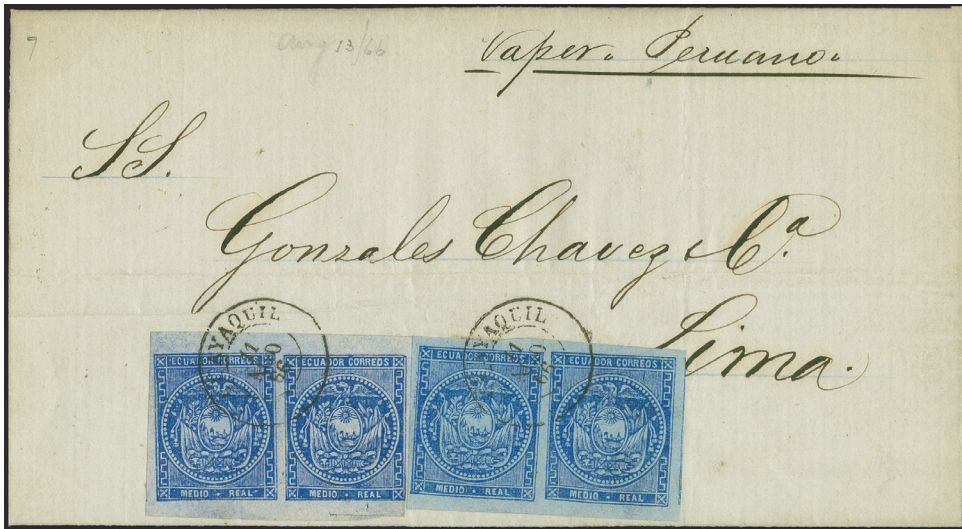 7
Aug 13/66
Vapor. Peruano.
SS.
Gonzales Chavez & Ca.
Lima.
GUAYAQUIL
21
AGO
66
GUAYAQUIL
21
AGO
66
ECUADOR CORREOS
MEDIO • REAL
ECUADOR CORREOS
MEDIO • REAL
ECUADOR CORREOS
MEDIO • REAL
ECUADOR CORREOS
MEDIO • REAL